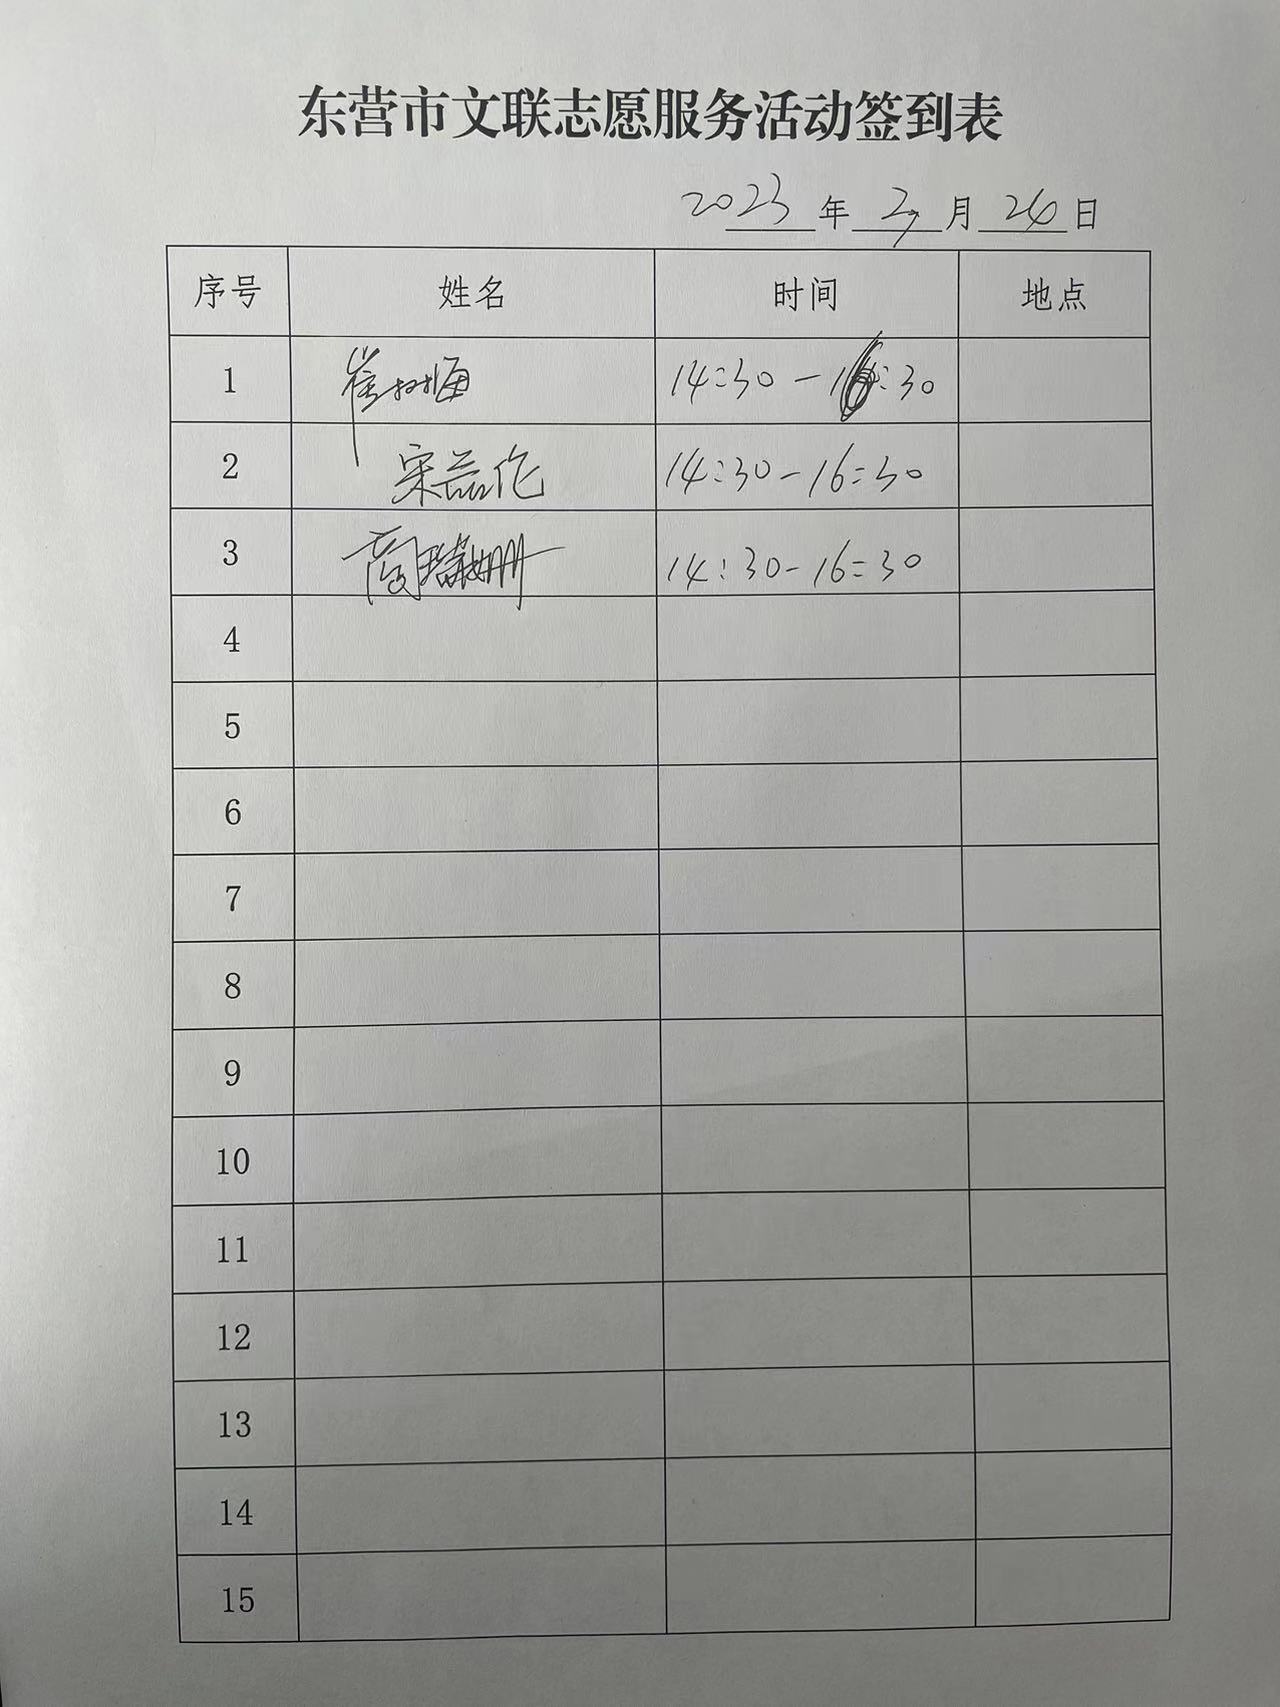 东营市文联志愿服务活动签到表
2023 年 2 月 26 日
序号 姓名 时间 地点
1 崔树梅 14:30-16:30
2 宋蕊作 14:30-16:30
3 商瑞姗 14:30-16:30
4
5
6
7
8
9
10
11
12
13
14
15